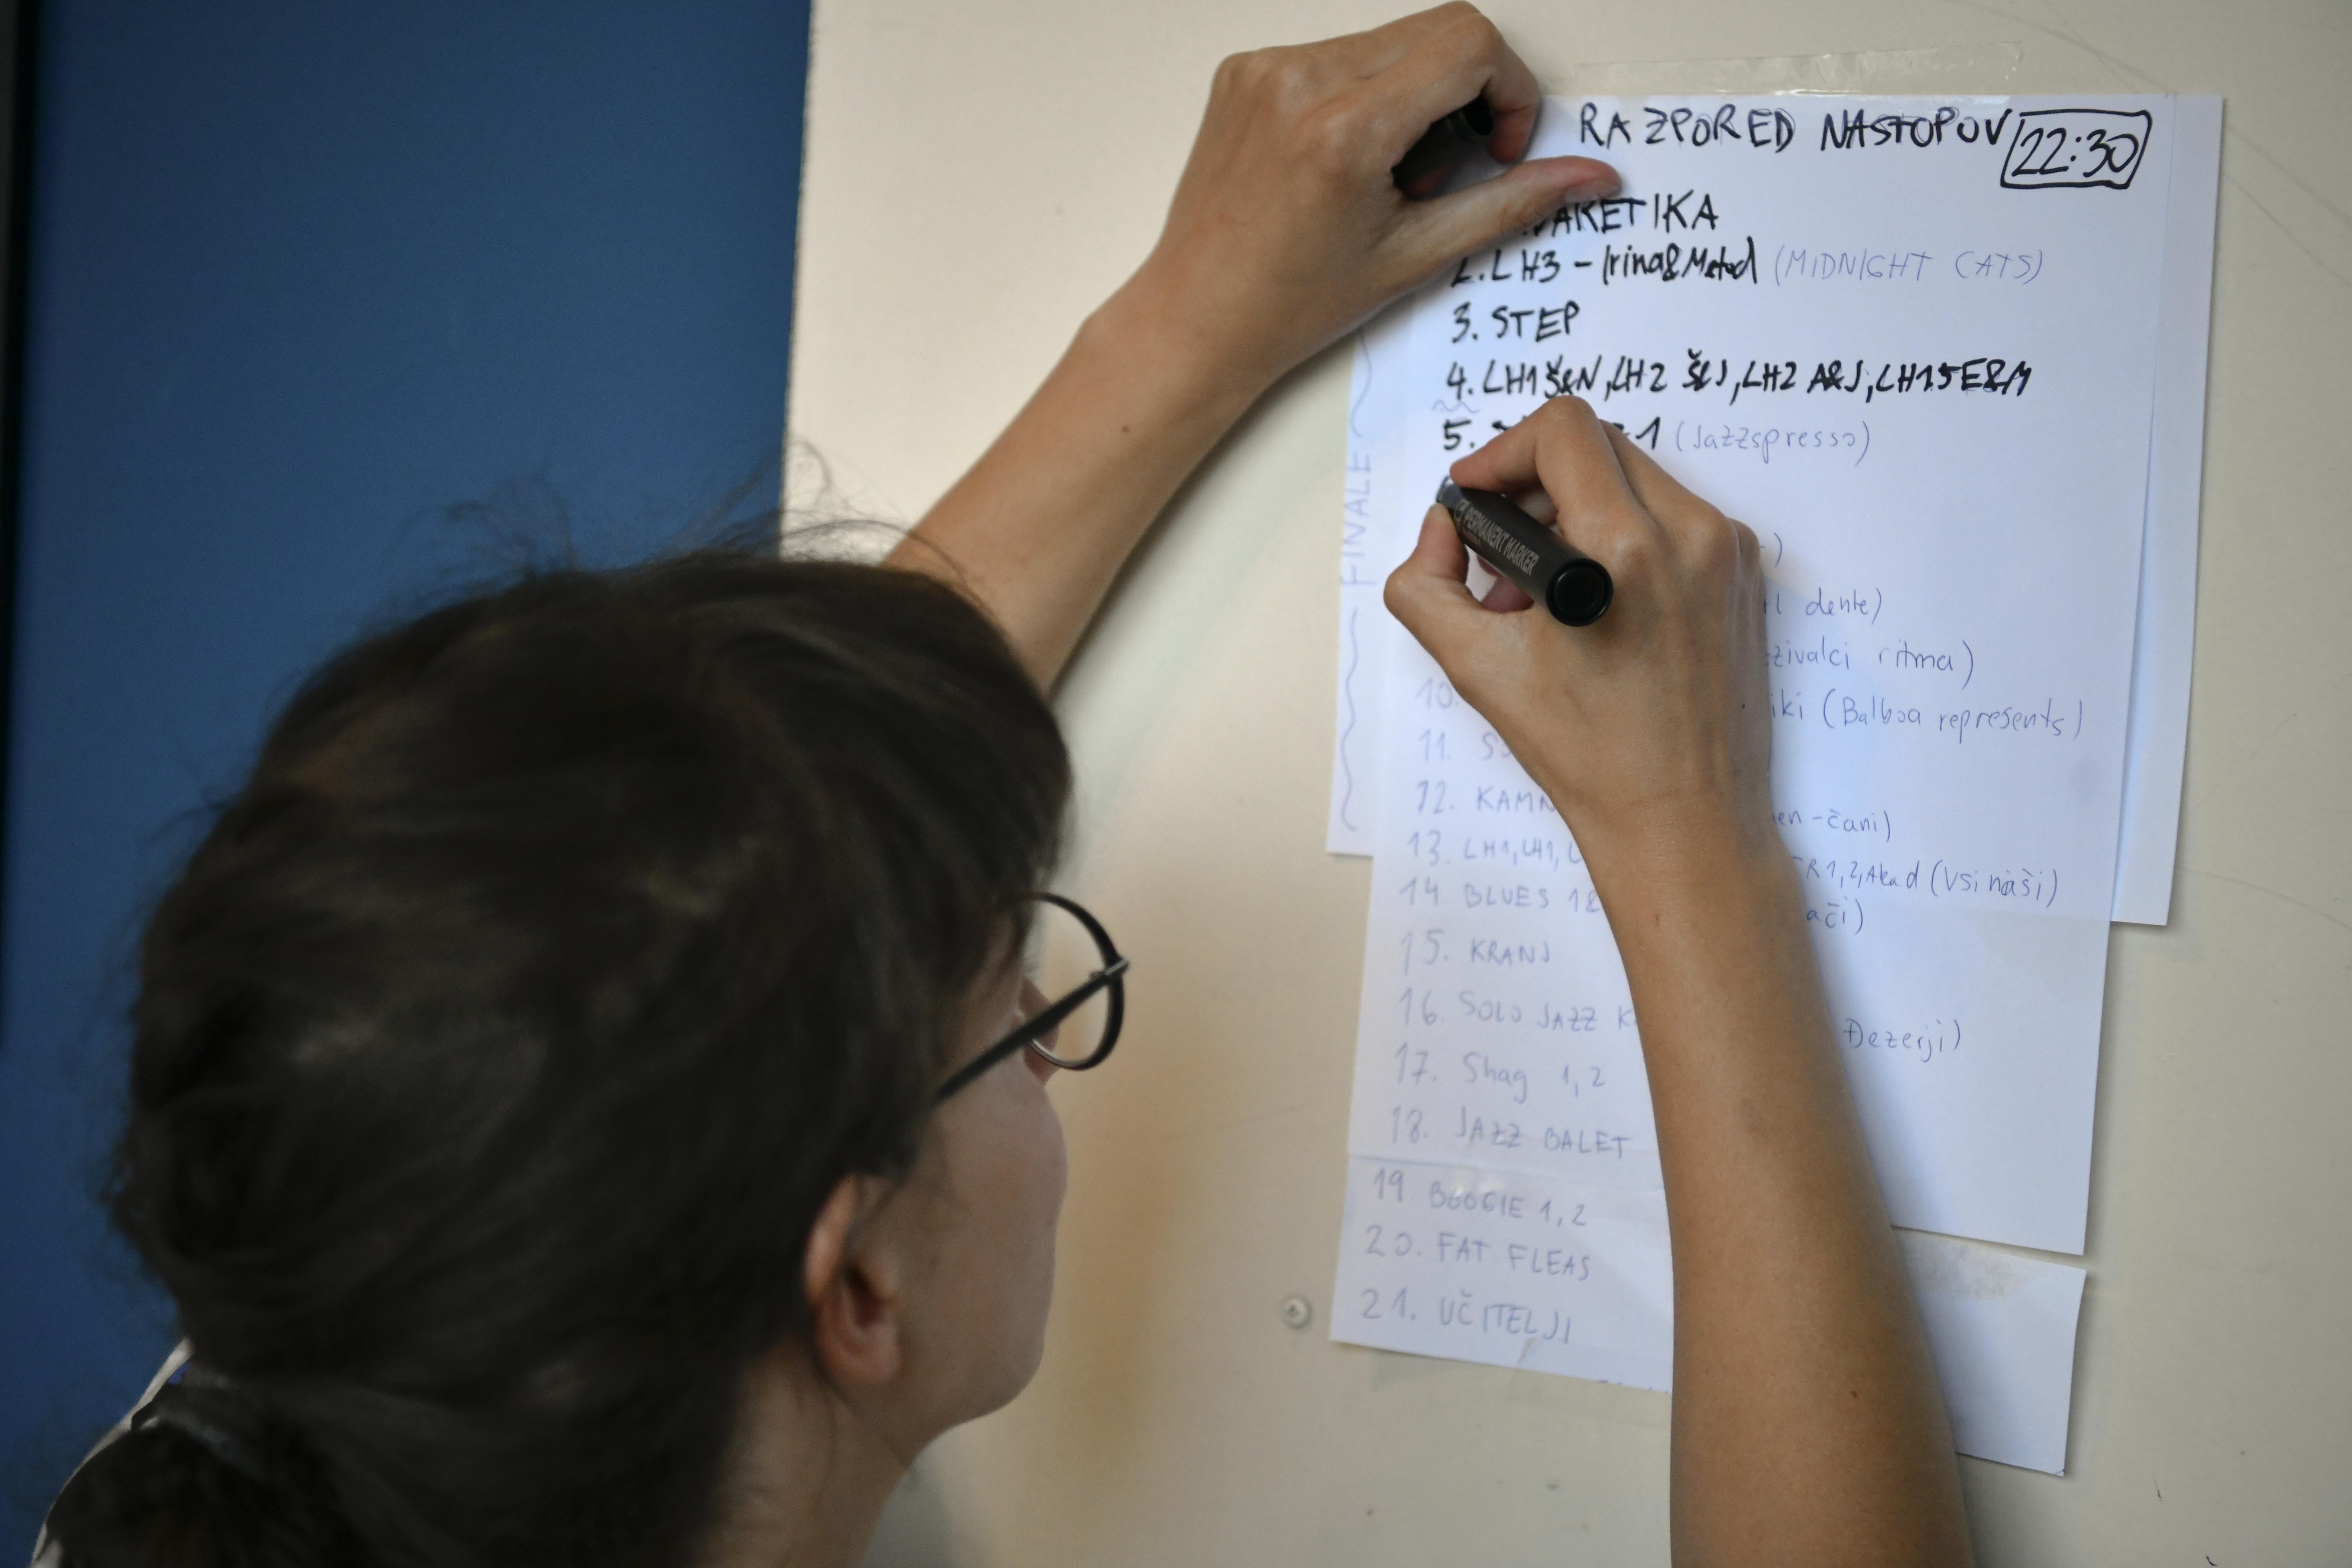 RAZPORED NASTOPOV 22:30
2. LH3 - Irina&Metod (MIDNIGHT CATS)
3. STEP
4. LH1 Š&N, LH2 Š&J, LH2 A&J, LH1.5 E&M
5. 1 (Jazzspresso)
dente)
ritma)
10. (Balboa represents)
11.
12. KAMN
-čani)
13. LH1, LH1, R1,2, Akad (Vsi naši)
14. BLUES 1&
15. KRANJ
16. SOLO JAZZ
Đezerji)
17. Shag 1,2
18. JAZZ BALET
19 BOOGIE 1,2
20. FAT FLEAS
21. UČITELJI
FINALE
PERMANENT MARKER